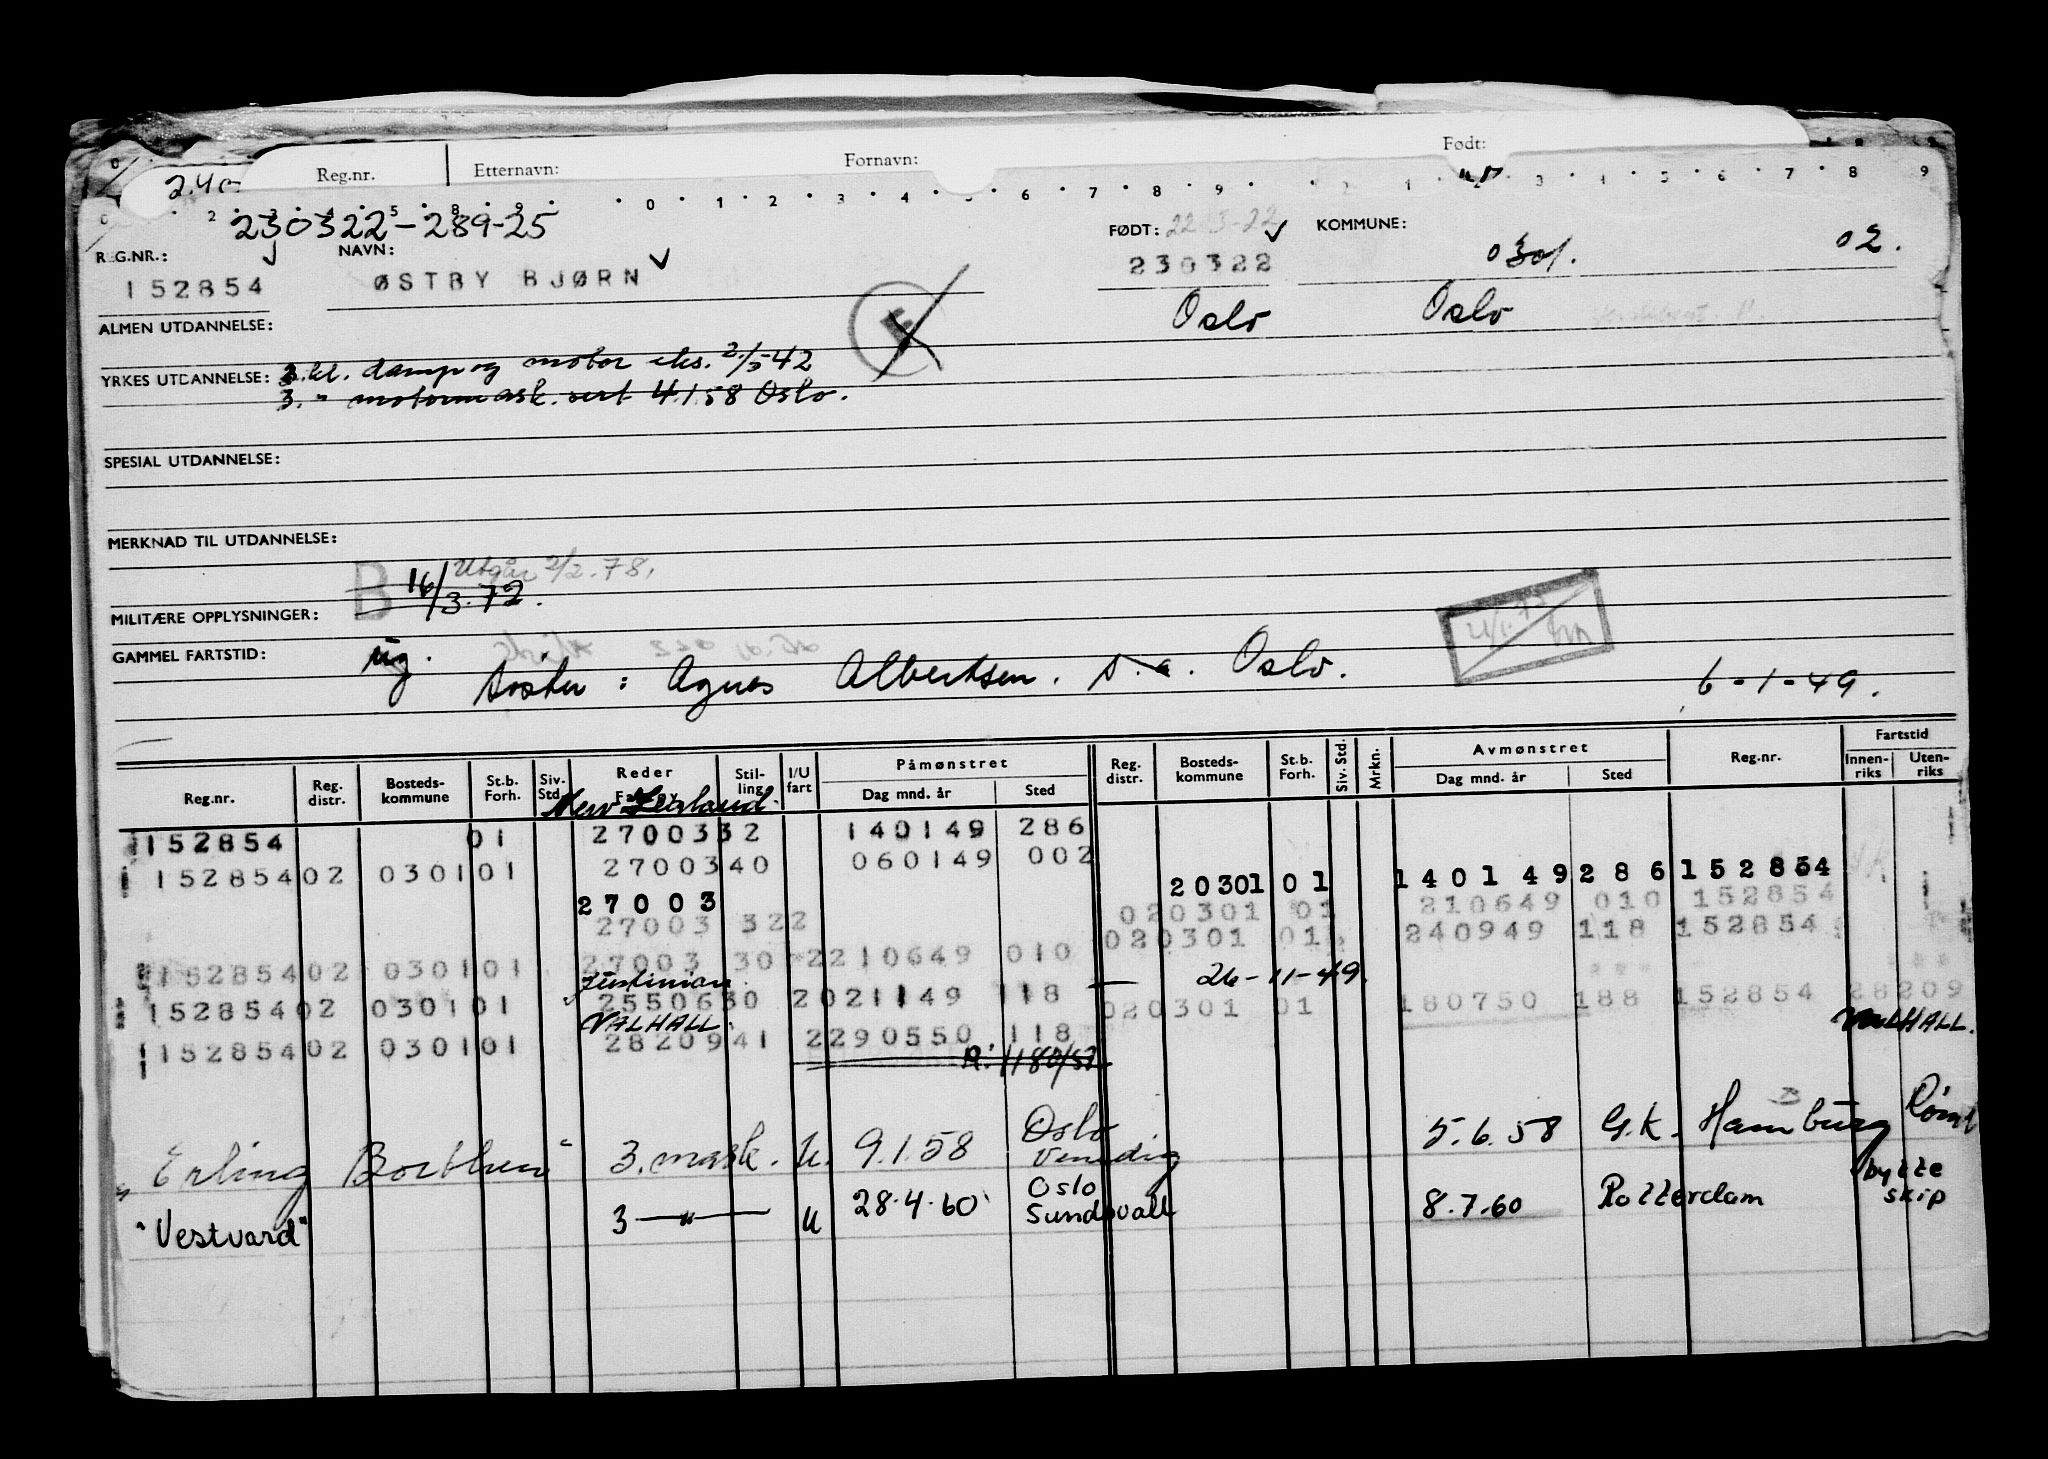 Reg.nr. Etternavn: Fornavn: Født:
0 1 2 3 4 5 6 7 8 9
230322-289-25
REG.NR.: NAVN: FØDT: 22 3-22 KOMMUNE: 0301. 02.
152854 ØSTBY BJØRN 230322
Oslo Oslo
ALMEN UTDANNELSE:
YRKES UTDANNELSE: 2.kl. damp og motor eks. 2/5-42
3. " motormask. sert 4.1.58 Oslo.
SPESIAL UTDANNELSE:
MERKNAD TIL UTDANNELSE:
Utgår 2/2.78.
MILITÆRE OPPLYSNINGER: B 16/3.72.
GAMMEL FARTSTID: ug.
søster: Agnes Albertsen. s.a. Oslo. 6-1-49.
Reg.nr. Reg. distr. Bosteds-kommune St.b. Forh. Siv. Std. Reder Stil-ling I/U fart Påmønstret Dag mnd. år Sted Reg. distr. Bosteds-kommune St.b. Forh. Siv. Std. Mrkn. Avmønstret Dag mnd. år Sted Reg.nr. Fartstid Innen-riks Uten-riks
152854 01 2700332 140149 286
152854 02 030101 2700340 060149 002
27003 20301 01 140149 286 152854
27003 322 020301 01 210649 010 152854
020301 01 240949 118 152854
152854 02 030101 27003 30 2210649 010
Justinian 26-11-49.
152854 02 030101 2550630 2021149 118 020301 01 180750 188 152854 28209
VALHALL. VALHALL.
152854 02 030101 2820941 2290550 118
Oslo
"Erling Borthen" 3. mask. U. 9.1.58 Venedig 5.6.58 G.K. Hamburg
Oslo
"Vestvard" 3 — " — U 28.4.60 Sundsvall 8.7.60 Rotterdam bytte skip